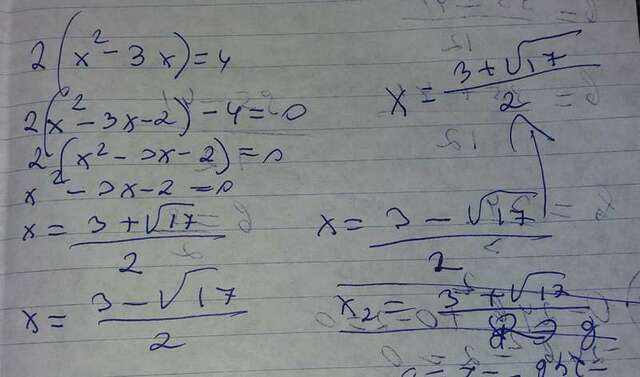 2(x² - 3x) = 4
2(x² - 3x - 2) - 4 = 0
2(x² - 3x - 2) = 0
x² - 3x - 2 = 0
x = (3 + √17) / 2
x = (3 - √17) / 2
x = (3 + √17) / 2
x = (3 - √17) / 2
x₂ = 3 + √17